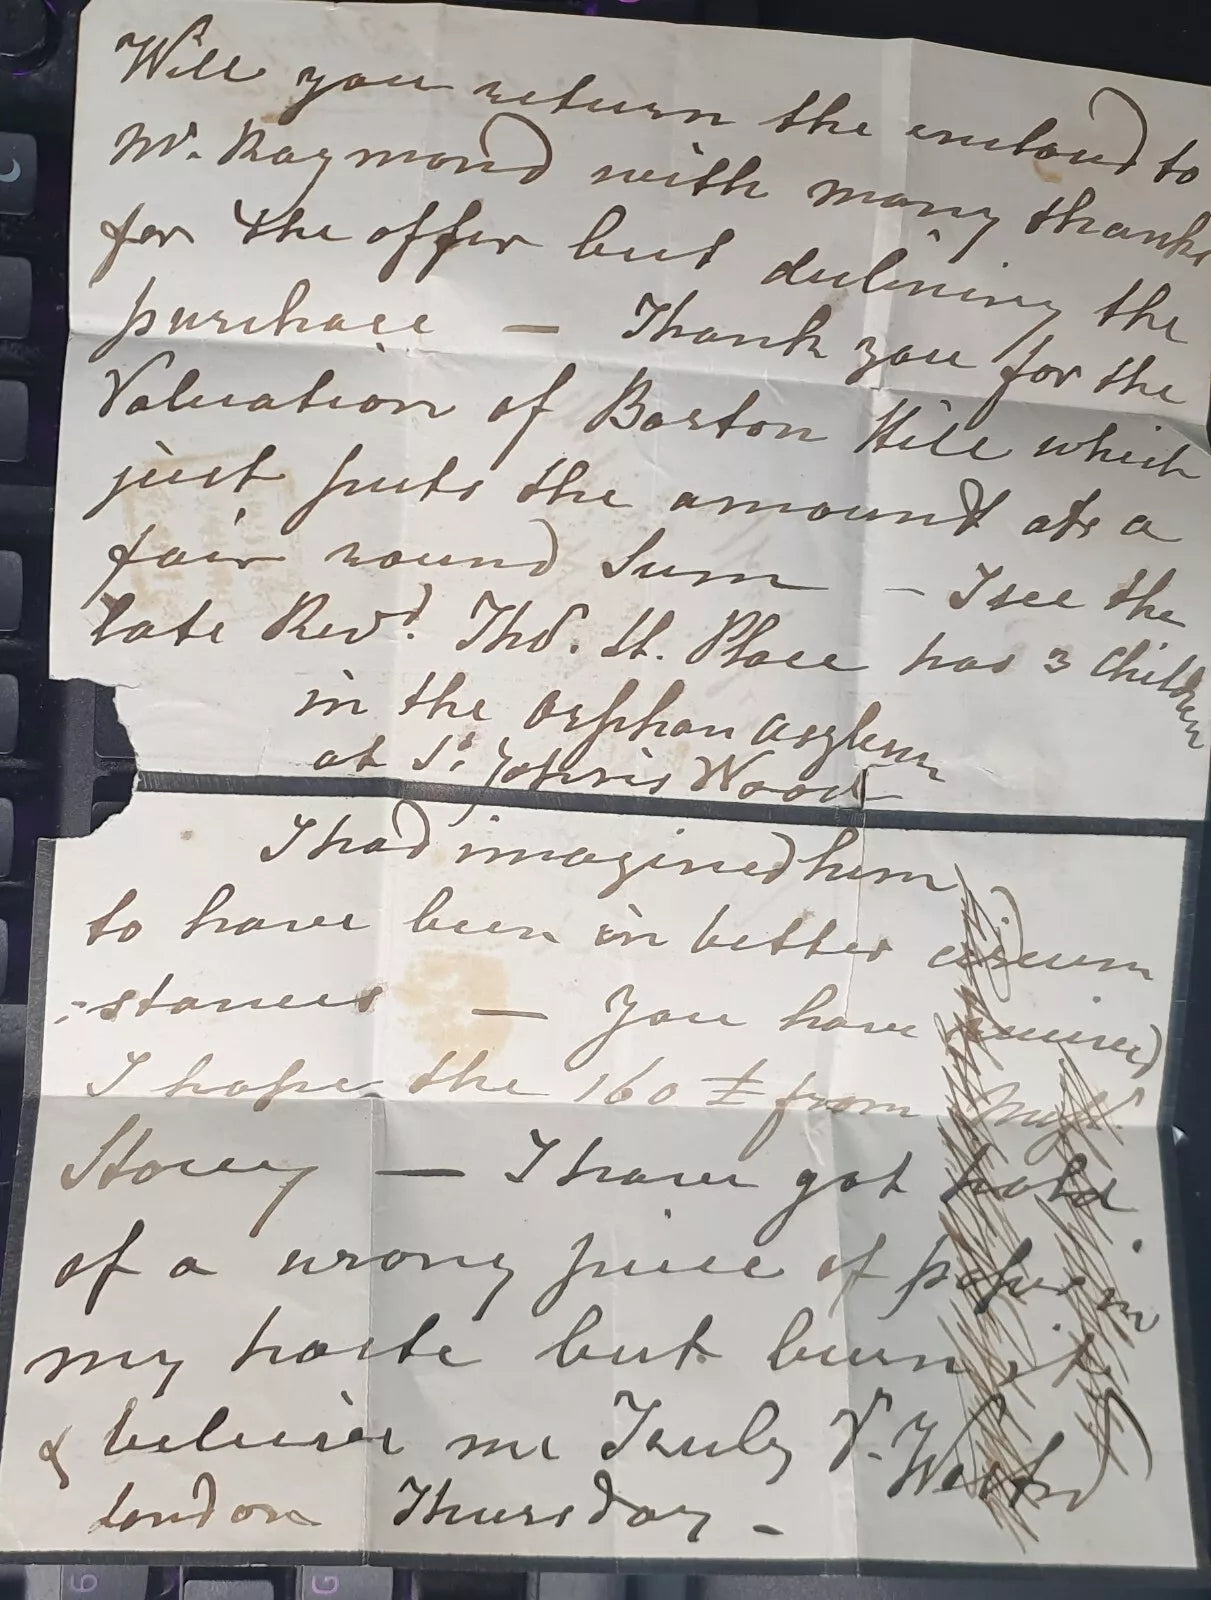 Will you return the enclosed to
Mr. Raymond with many thanks
for the offer but declining the
purchase — Thank you for the
Valuation of Barton Hill which
just puts the amount at a
fair round Sum — I see the
late Revd. Thos. H. Place has 3 Children
in the orphan asylum
at St. John's Wood
I had imagined him
to have been in better circum
=stances — You have received
I hope the 160 £ from
Storey — I have got hold
of a wrong piece of paper in
my haste but burn it
& believe me Truly V.
London Thursday -